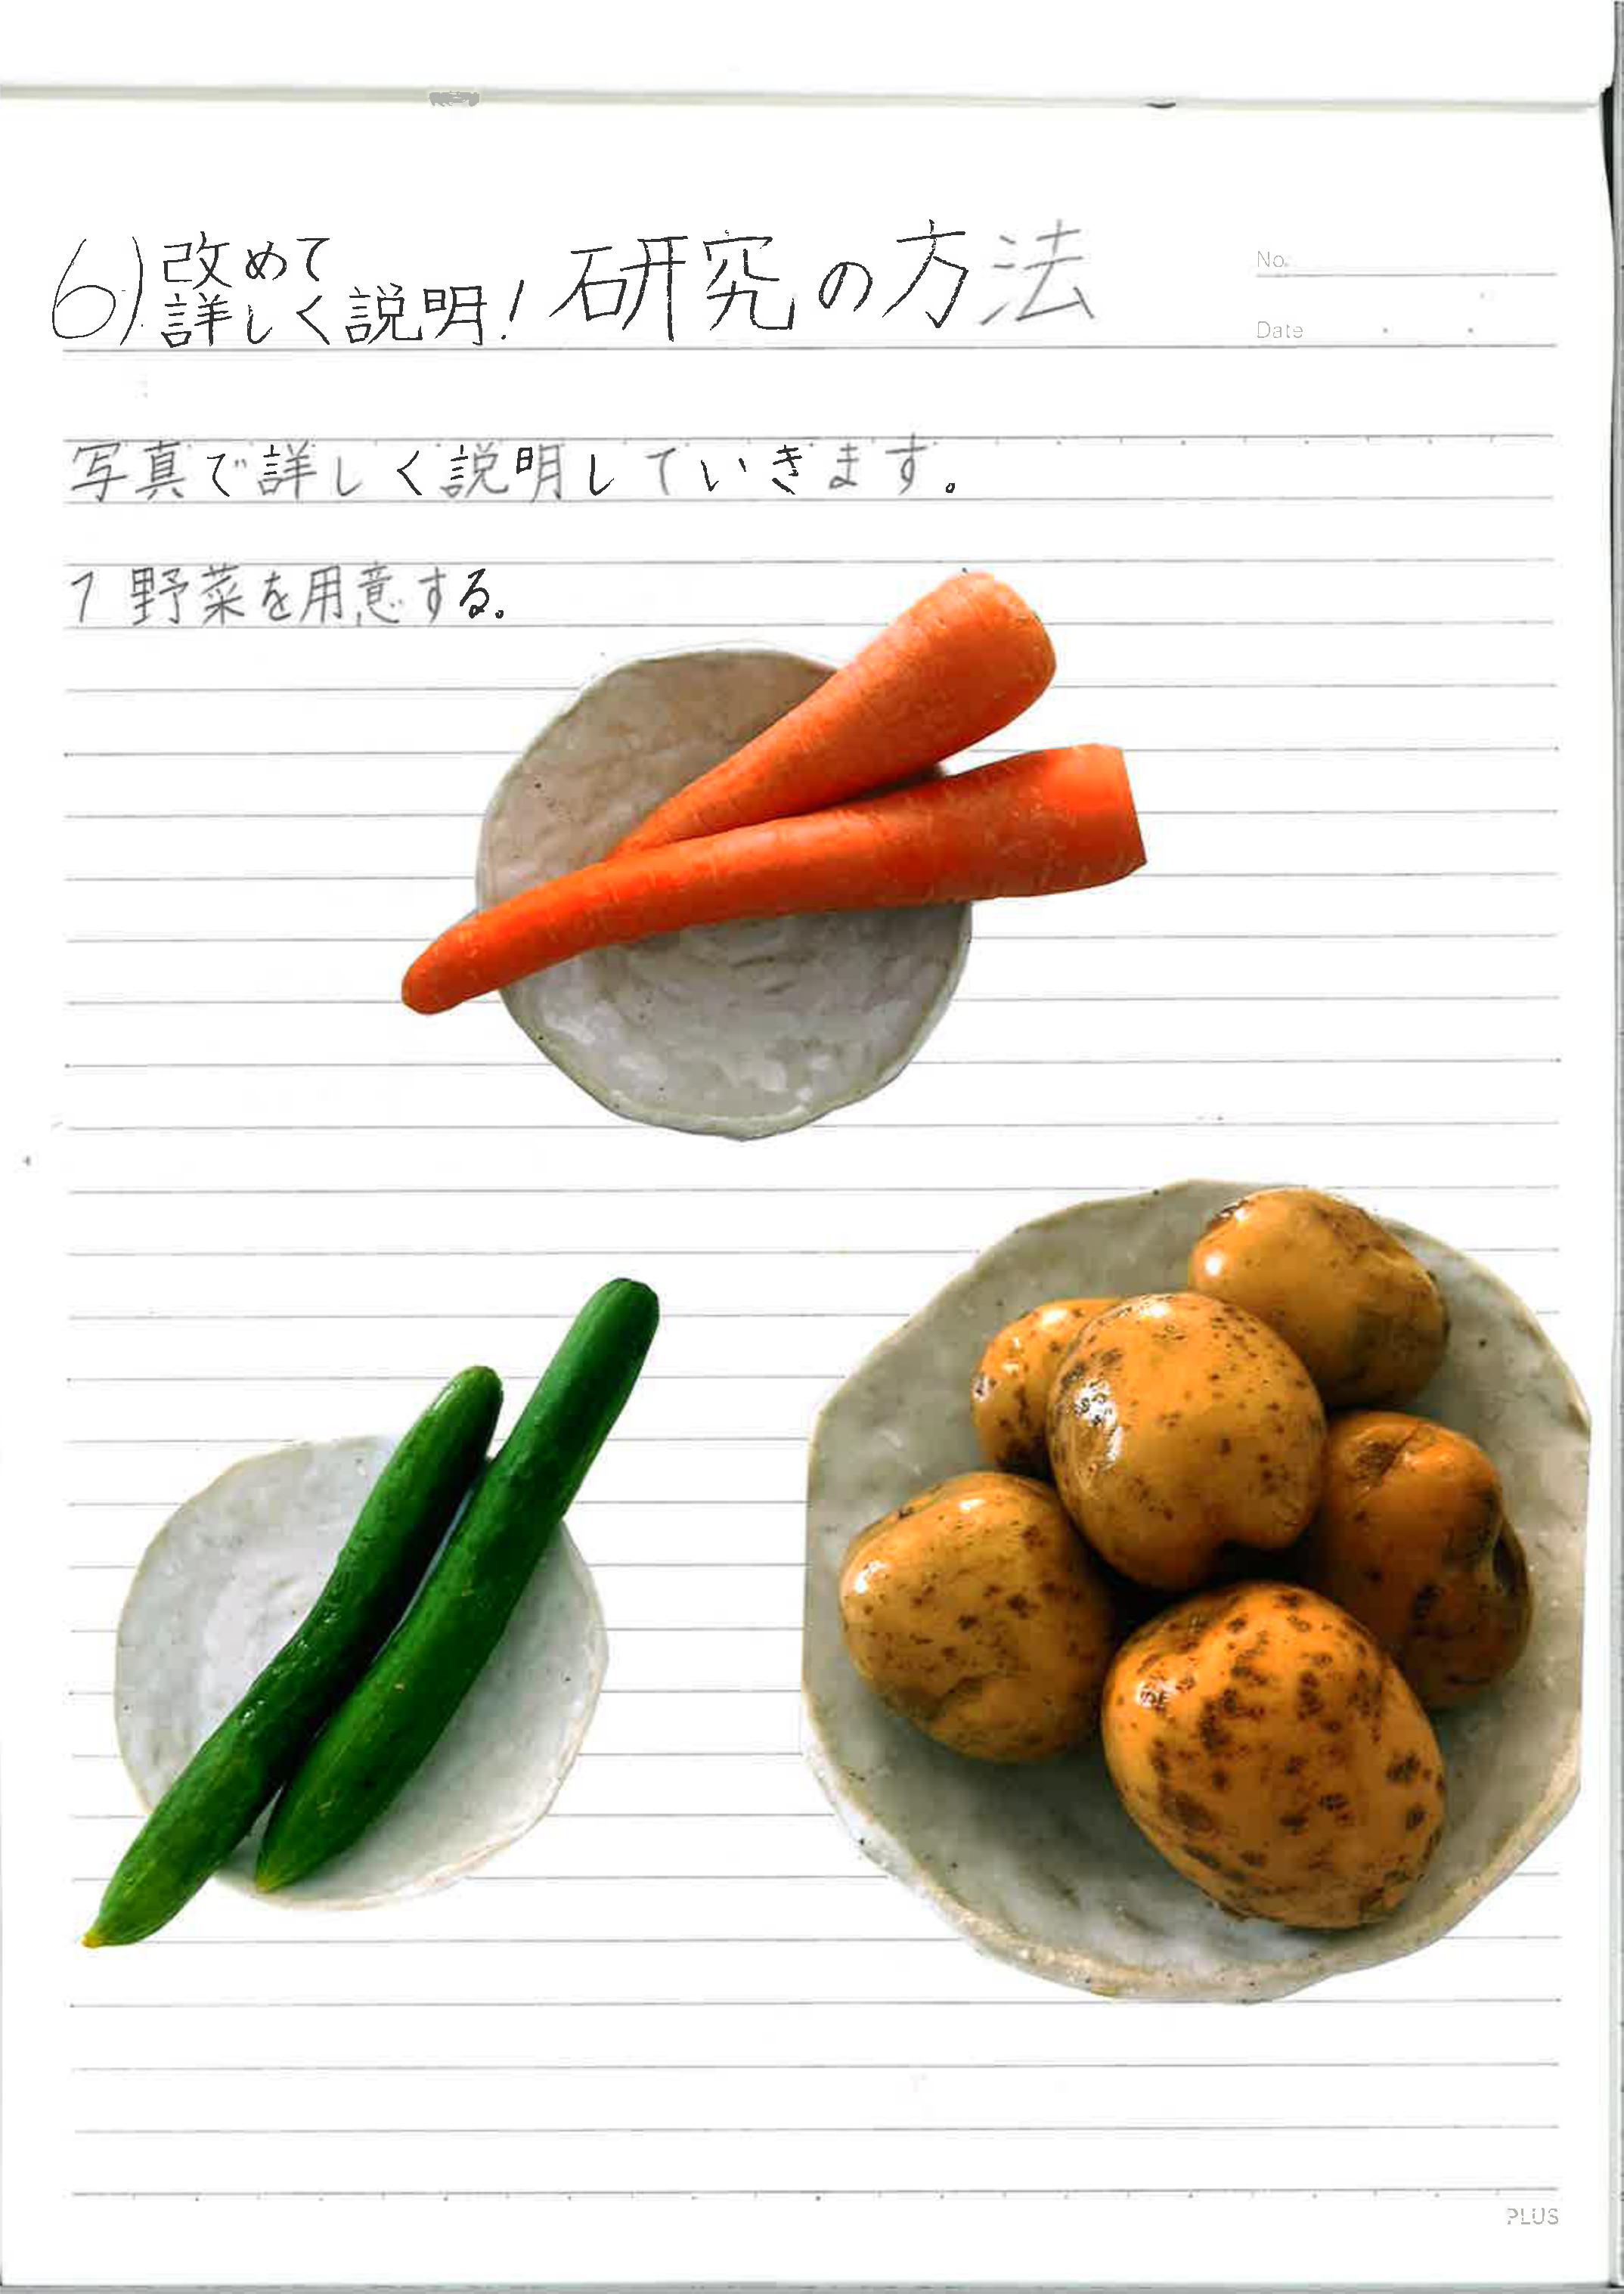 6) 改めて詳しく説明! 研究の方法
No.
Date
写真で詳しく説明していきます。
1 野菜を用意する。
PLUS